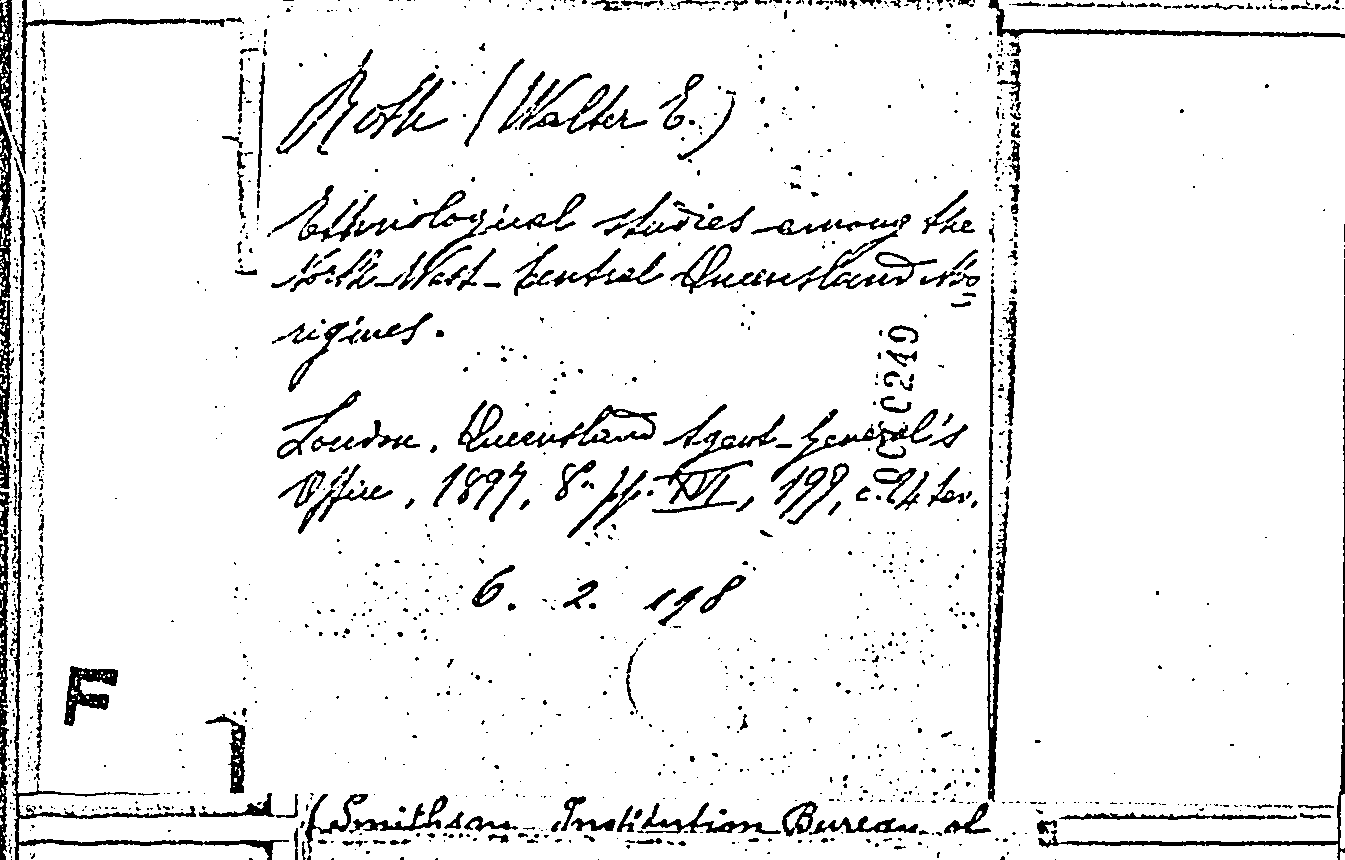 Roth (Walter E.)
Ethnological studies among the
North-West-Central Queensland Abo
rigines.
London, Queensland Agent-General's
Office, 1897, 8° pp. XVI, 199, c. 24 tav.
6. 2. 198
0249
F
(Smithson Institution Bureau of